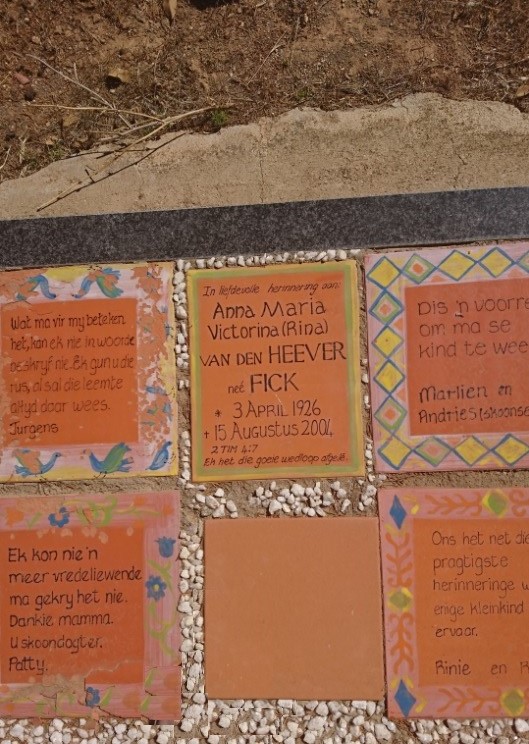 Wat ma vir my beteken
het, kan ek nie in woorde
beskryf nie. Ek gun u die
rus, al sal die leemte
altyd daar wees.
Jurgens
In liefdevolle herinnering aan:
Anna Maria
Victorina (Rina)
VAN DEN HEEVER
neé FICK
* 3 APRIL 1926
† 15 AUGUSTUS 2004
2 TIM 4:7
Ek het die goeie wedloop afgelê.
Dis 'n voorre
om ma se
kind te wee
Marlien en
Andries (skoonse
Ek kon nie 'n
meer vredeliewende
ma gekry het nie.
Dankie mamma.
U skoondogter.
Patty.
Ons het net die
pragtigste
herinneringe
enige kleinkind
ervaar.
Rinie en